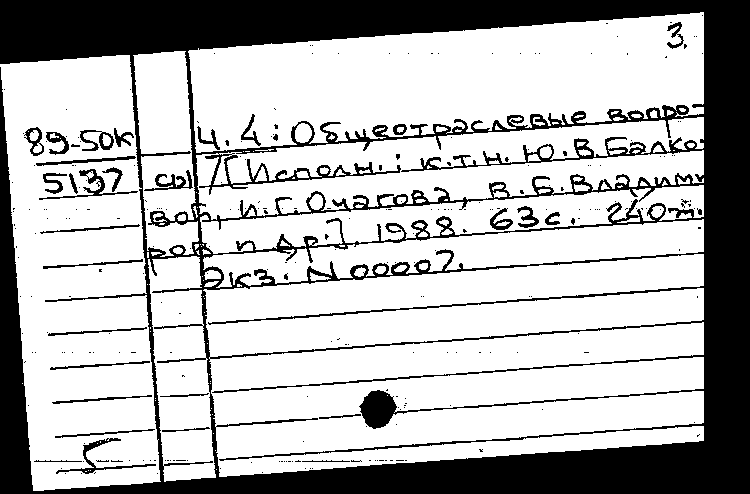 3.
89-50к Ч. 4: Общеотраслевые вопро-
5137 сы /[Исполн.: к.т.н. Ю.В.Балко-
вой, И.Г.Очагова, В.Б.Владими
ров и др.]. 1988. 63с. 240т.
Экз. N 00007.
5